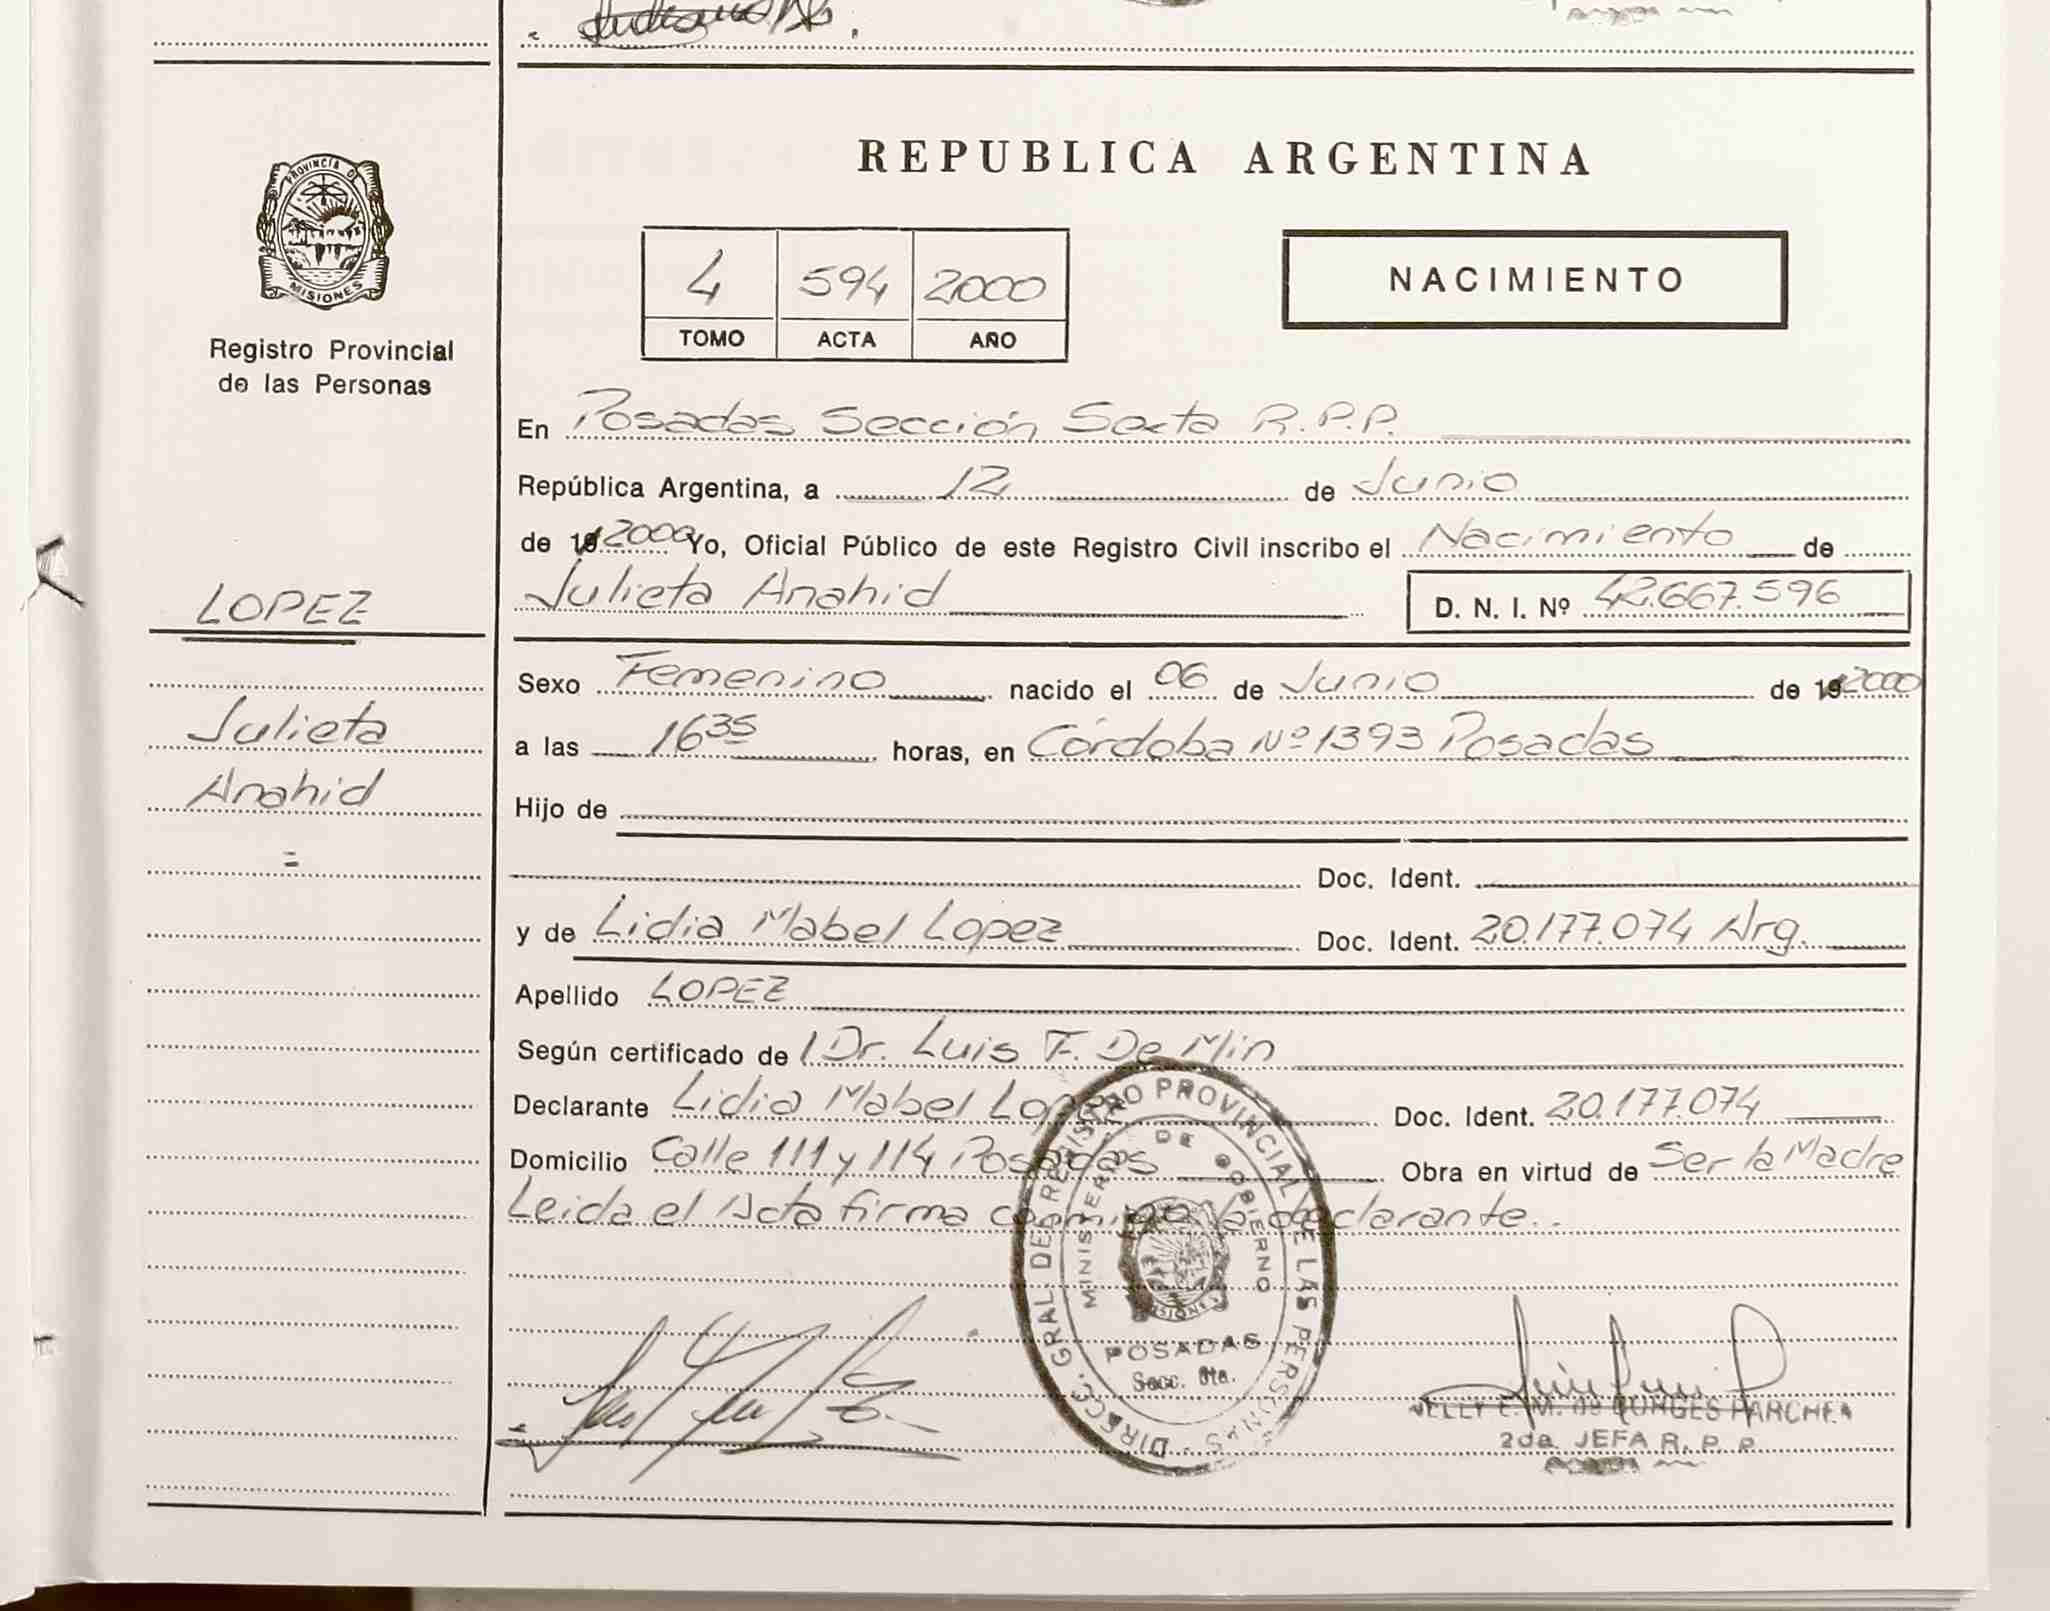 PROVINCIA DE
MISIONES
Registro Provincial
de las Personas
LOPEZ
Julieta
Anahid
=
REPUBLICA ARGENTINA
4 594 2000
TOMO ACTA AÑO
NACIMIENTO
En Posadas Sección Sexta R.P.P.
República Argentina, a 12 de Junio
de 19 2000 Yo, Oficial Público de este Registro Civil inscribo el Nacimiento de
Julieta Anahid D. N. I. Nº 42.667.596
Sexo Femenino nacido el 06 de Junio de 19 2000
a las 16 35 horas, en Córdoba Nº 1393 Posadas
Hijo de
Doc. Ident.
y de Lidia Mabel Lopez Doc. Ident. 20.177.074 Arg.
Apellido LOPEZ
Según certificado de Dr. Luis F. De Min
Declarante Lidia Mabel Lopez Doc. Ident. 20.177.074
Domicilio Calle 111 y 114 Posadas Obra en virtud de Ser la Madre
Leida el Acta firma conmigo la declarante..
DIRECC. GRAL. DEL REGISTRO PROVINCIAL DE LAS PERSONAS
MINISTERIO DE GOBIERNO
MISIONES
POSADAS
Secc. 6ta.
NELLY E. M. de BORGES PARCHEA
2da. JEFA R. P. P.